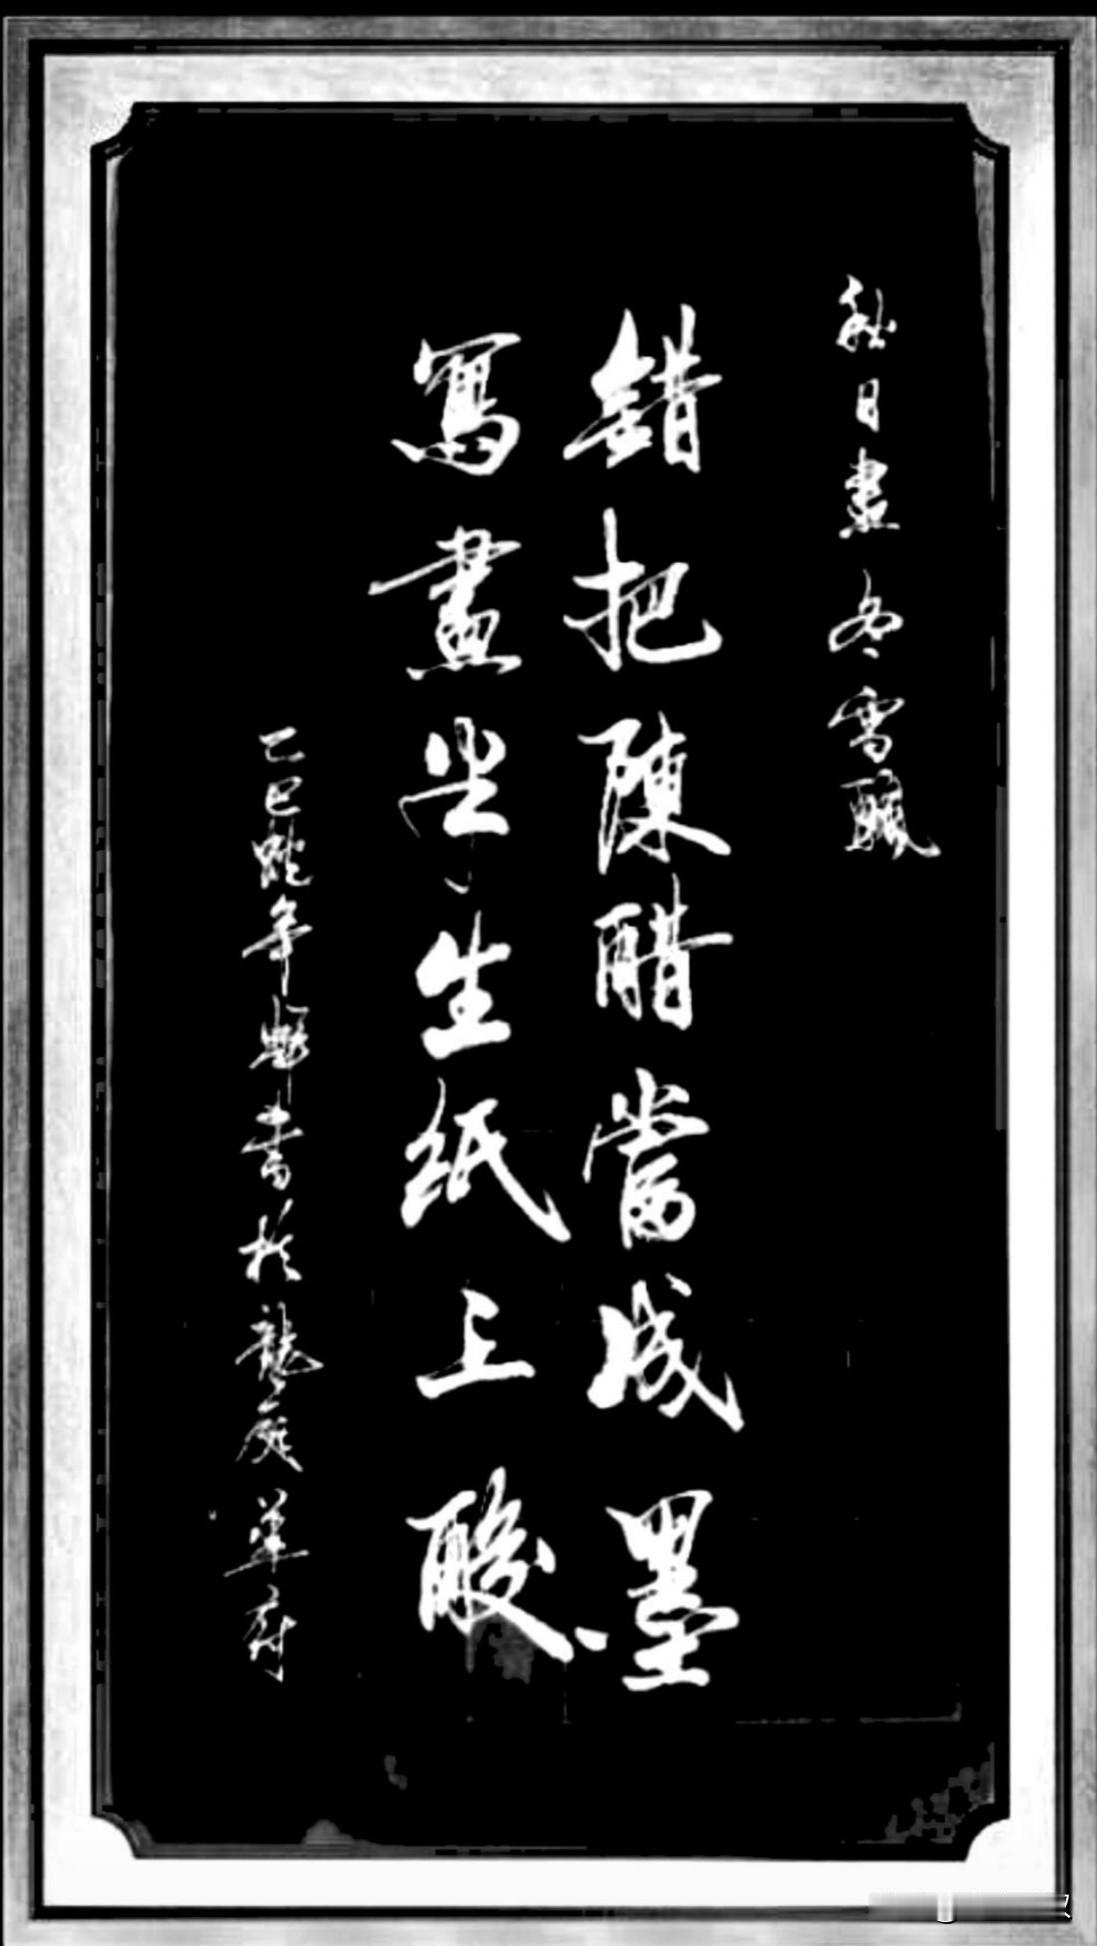 秋日盡冬雪釀
錯把陳醋當成墨
寫盡半生紙上酸
乙巳蛇年書於龍庭華府